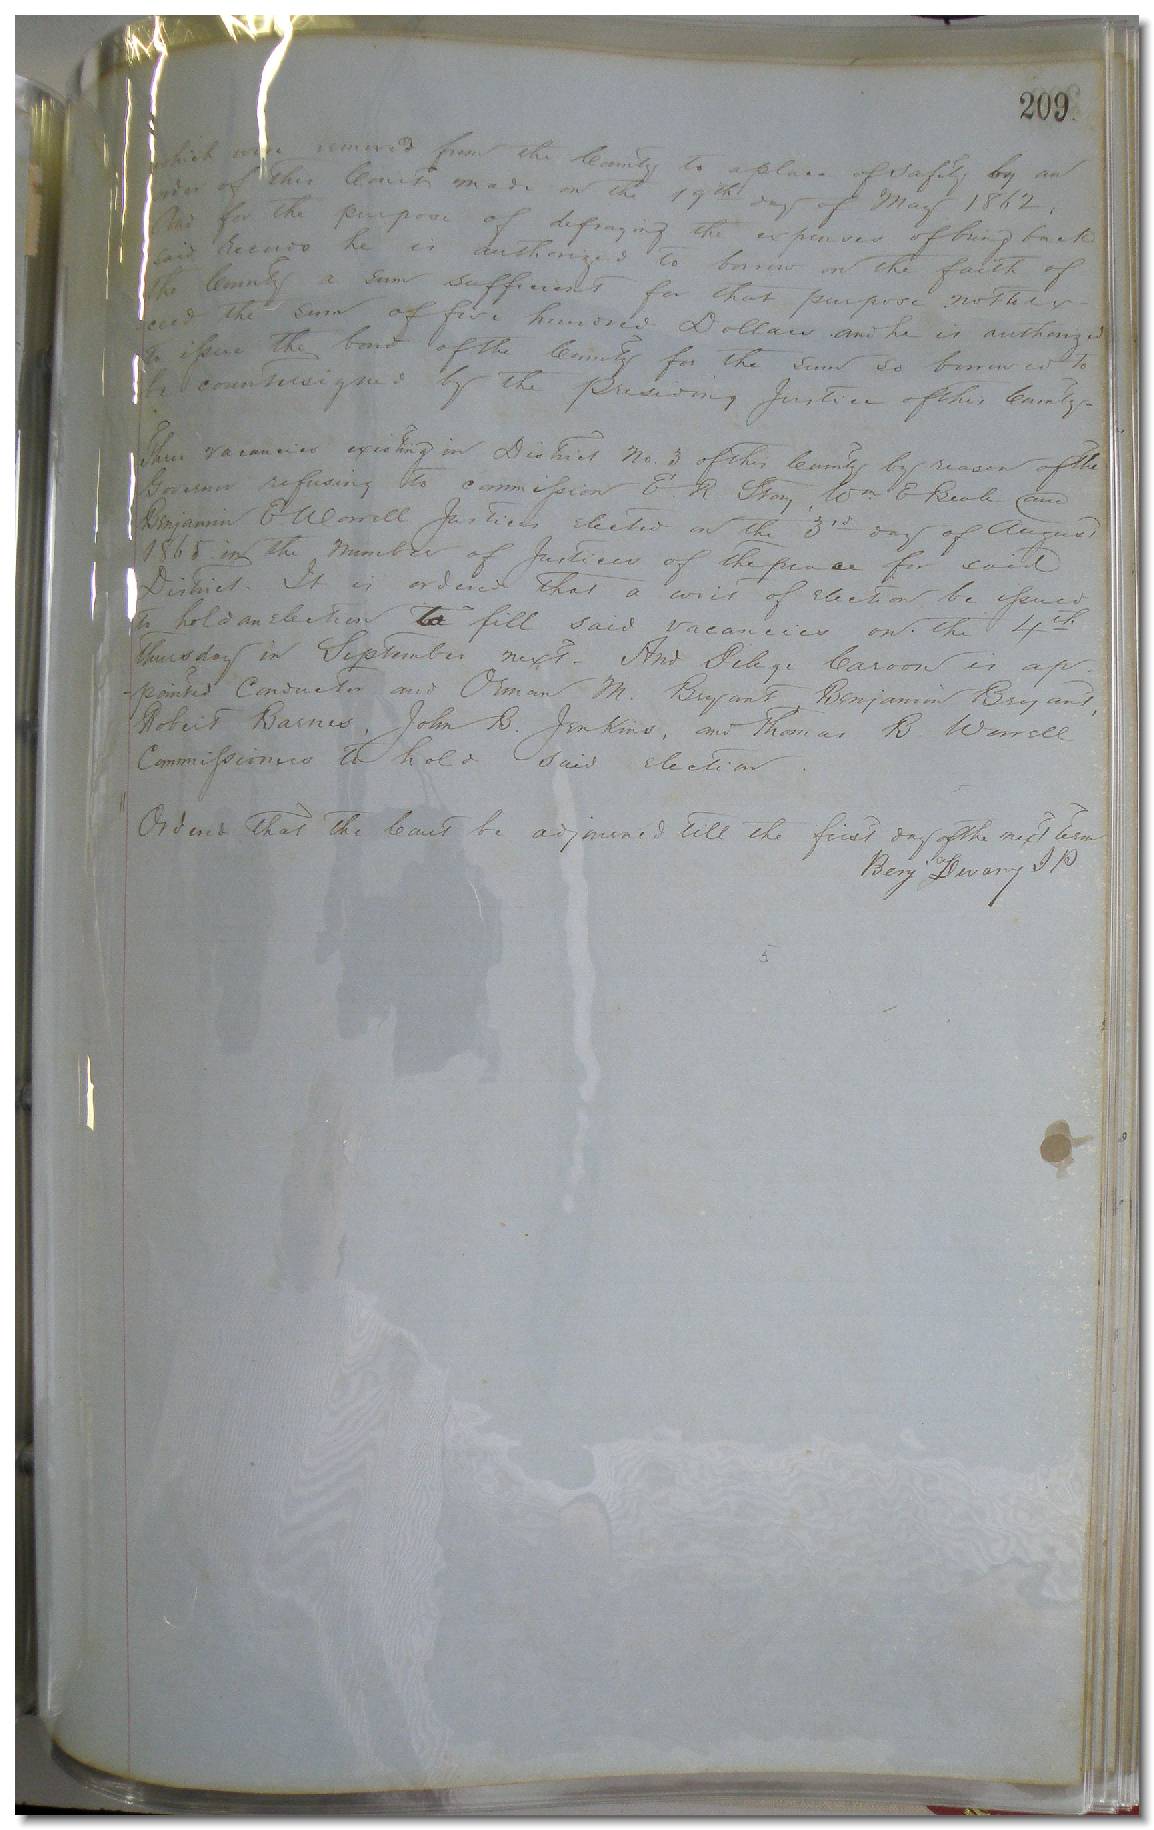 209
which were removed from the County to a place of safety by an
order of this Court made on the 19th day of May 1862.
And for the purpose of defraying the expenses of bring back
said Records he is authorized to borrow on the faith of
the County a sum sufficient for that purpose not to ex-
ceed the sum of five hundred Dollars and he is authorized
to issue the bond of the County for the sum so borrowed to
be countersigned by the Presiding Justice of this County-
Three vacancies existing in District No. 3 of this County by reason of the
Governor refusing to commission E. R. Story, Wm E Beale and
Benjamin E Worrell Justices elected on the 3rd day of August
1865 in the number of Justices of the peace for said
District. It is ordered that a writ of election be issued
to hold an election to fill said vacancies on the 4th
thursday in September next. And Caroon is ap-
pointed Conductor and Orman M. Bryant, Benjamin Bryant,
Robert Barnes, John B. Jenkins, and Thomas R Worrell
Commissioners to hold said election.
Ordered that the Court be adjourned till the first day of the next term
Benj J P